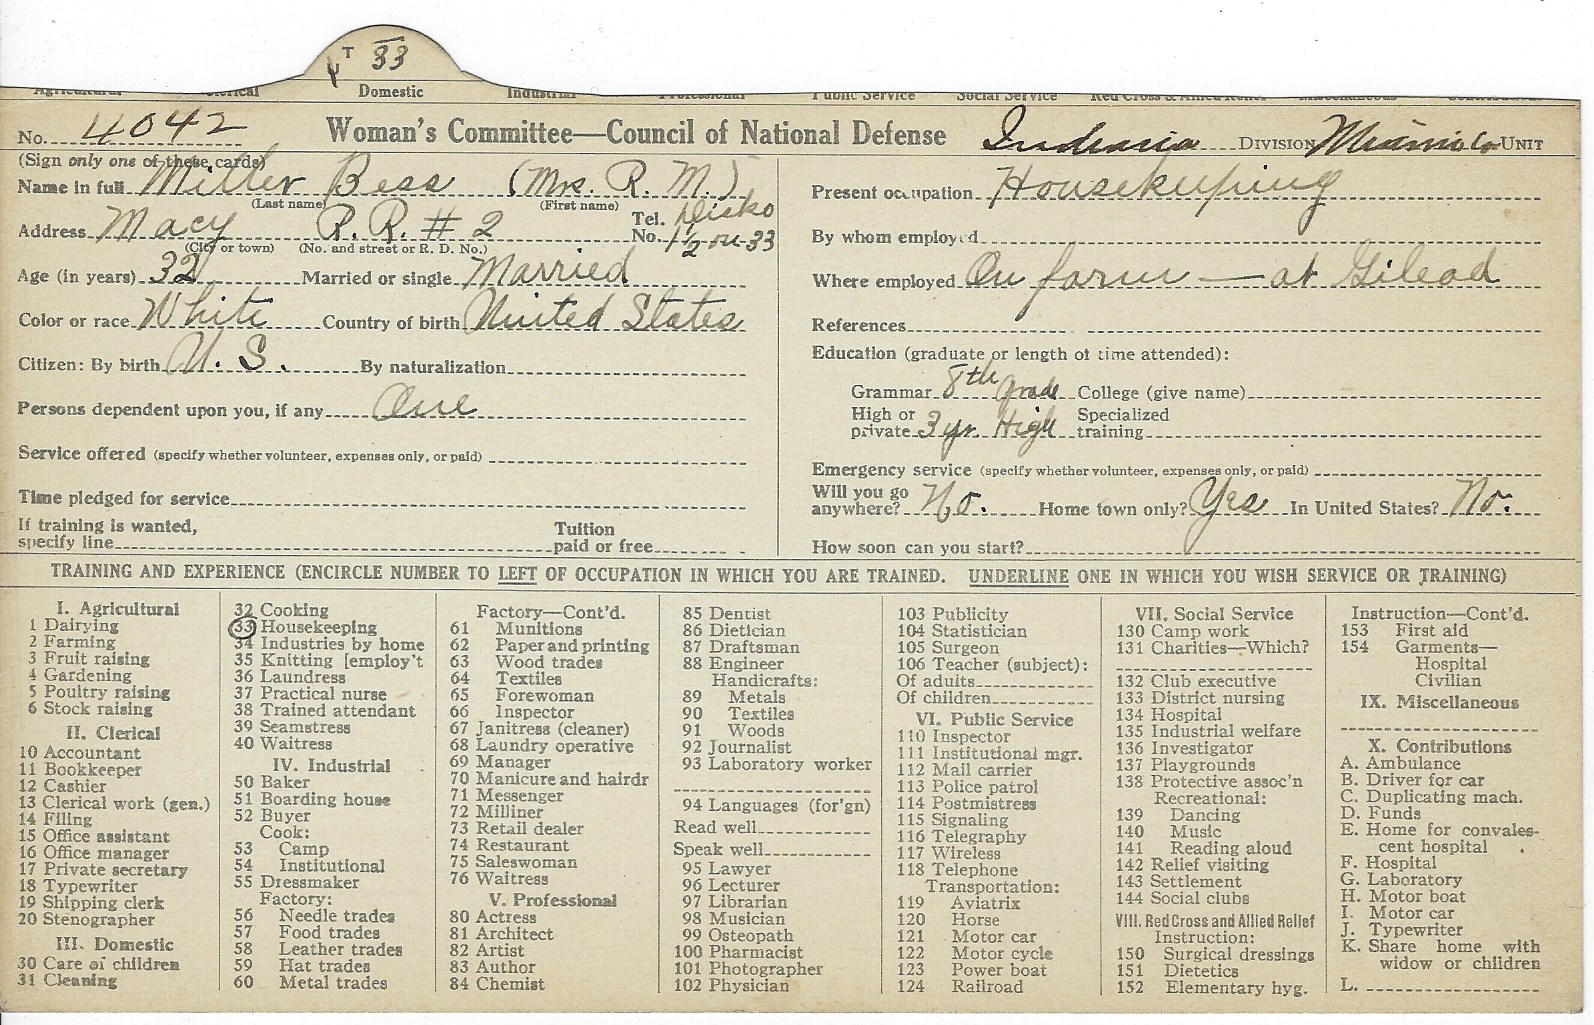 T 33
Agricultural Clerical Domestic Industrial Professional Public Service Social Service Red Cross & Allied Relief Miscellaneous Contributions
No. 4042 Woman's Committee—Council of National Defense Indiana DIVISION Miami Co UNIT
(Sign only one of these cards)
Name in full Miller Bess (Mrs. R. M.)
(Last name) (First name)
Address Macy R. R. # 2 Tel. No. Disko 1 1/2 on 33
(City or town) (No. and street or R. D. No.)
Age (in years) 32 Married or single Married
Color or race White Country of birth United States
Citizen: By birth U. S. By naturalization
Persons dependent upon you, if any One
Service offered (specify whether volunteer, expenses only, or paid)
Time pledged for service
If training is wanted, Tuition
specify line paid or free
Present occupation Housekeeping
By whom employed
Where employed On farm — at Gilead
References
Education (graduate or length of time attended):
Grammar 8th Grade College (give name)
High or Specialized
private 3 yr. High training
Emergency service (specify whether volunteer, expenses only, or paid)
Will you go
anywhere? No. Home town only? Yes In United States? No.
How soon can you start?
TRAINING AND EXPERIENCE (ENCIRCLE NUMBER TO LEFT OF OCCUPATION IN WHICH YOU ARE TRAINED. UNDERLINE ONE IN WHICH YOU WISH SERVICE OR TRAINING)
I. Agricultural
1 Dairying
2 Farming
3 Fruit raising
4 Gardening
5 Poultry raising
6 Stock raising
II. Clerical
10 Accountant
11 Bookkeeper
12 Cashier
13 Clerical work (gen.)
14 Filing
15 Office assistant
16 Office manager
17 Private secretary
18 Typewriter
19 Shipping clerk
20 Stenographer
III. Domestic
30 Care of children
31 Cleaning
32 Cooking
33 Housekeeping
34 Industries by home
35 Knitting [employ't
36 Laundress
37 Practical nurse
38 Trained attendant
39 Seamstress
40 Waitress
IV. Industrial
50 Baker
51 Boarding house
52 Buyer
Cook:
53 Camp
54 Institutional
55 Dressmaker
Factory:
56 Needle trades
57 Food trades
58 Leather trades
59 Hat trades
60 Metal trades
Factory—Cont'd.
61 Munitions
62 Paper and printing
63 Wood trades
64 Textiles
65 Forewoman
66 Inspector
67 Janitress (cleaner)
68 Laundry operative
69 Manager
70 Manicure and hairdr
71 Messenger
72 Milliner
73 Retail dealer
74 Restaurant
75 Saleswoman
76 Waitress
V. Professional
80 Actress
81 Architect
82 Artist
83 Author
84 Chemist
85 Dentist
86 Dietician
87 Draftsman
88 Engineer
Handicrafts:
89 Metals
90 Textiles
91 Woods
92 Journalist
93 Laboratory worker
94 Languages (for'gn)
Read well
Speak well
95 Lawyer
96 Lecturer
97 Librarian
98 Musician
99 Osteopath
100 Pharmacist
101 Photographer
102 Physician
103 Publicity
104 Statistician
105 Surgeon
106 Teacher (subject):
Of adults
Of children
VI. Public Service
110 Inspector
111 Institutional mgr.
112 Mail carrier
113 Police patrol
114 Postmistress
115 Signaling
116 Telegraphy
117 Wireless
118 Telephone
Transportation:
119 Aviatrix
120 Horse
121 Motor car
122 Motor cycle
123 Power boat
124 Railroad
VII. Social Service
130 Camp work
131 Charities—Which?
132 Club executive
133 District nursing
134 Hospital
135 Industrial welfare
136 Investigator
137 Playgrounds
138 Protective assoc'n
Recreational:
139 Dancing
140 Music
141 Reading aloud
142 Relief visiting
143 Settlement
144 Social clubs
VIII. Red Cross and Allied Relief
Instruction:
150 Surgical dressings
151 Dietetics
152 Elementary hyg.
Instruction—Cont'd.
153 First aid
154 Garments—
Hospital
Civilian
IX. Miscellaneous
X. Contributions
A. Ambulance
B. Driver for car
C. Duplicating mach.
D. Funds
E. Home for convales-
cent hospital
F. Hospital
G. Laboratory
H. Motor boat
I. Motor car
J. Typewriter
K. Share home with
widow or children
L.